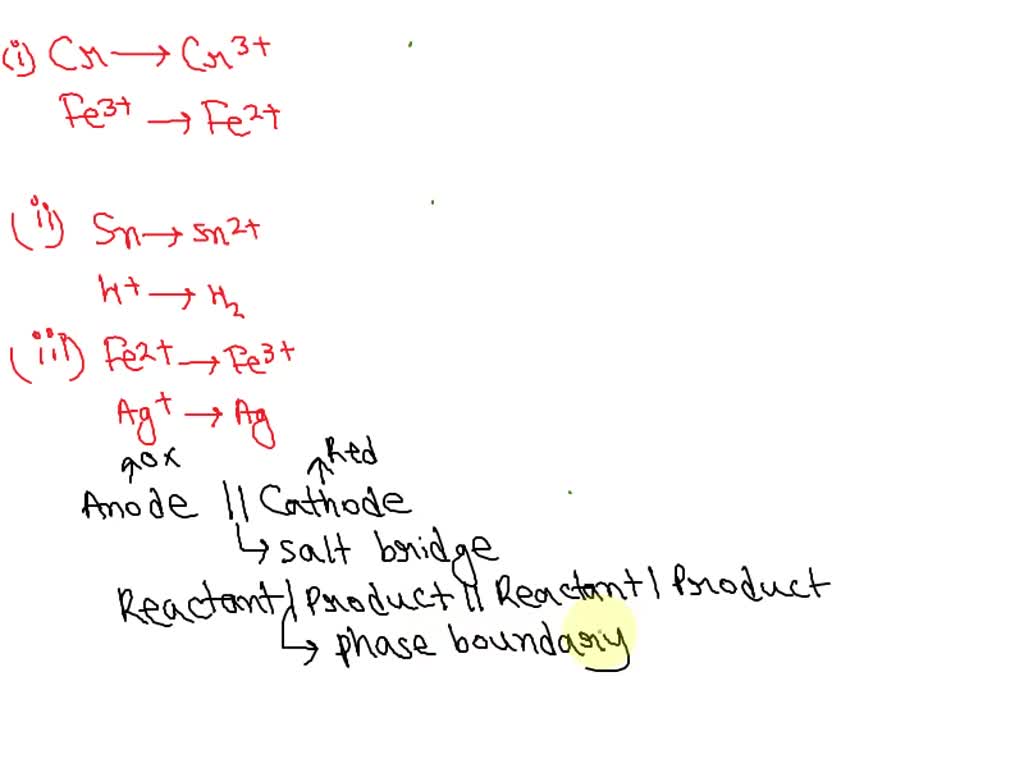 (i) Cr → Cr³⁺
Fe³⁺ → Fe²⁺
(ii) Sn → Sn²⁺
H⁺ → H₂
(iii) Fe²⁺ → Fe³⁺
Ag⁺ → Ag
↑ox ↑Red
Anode || Cathode
↳ salt bridge
Reactant | Product || Reactant | Product
↳ phase boundary